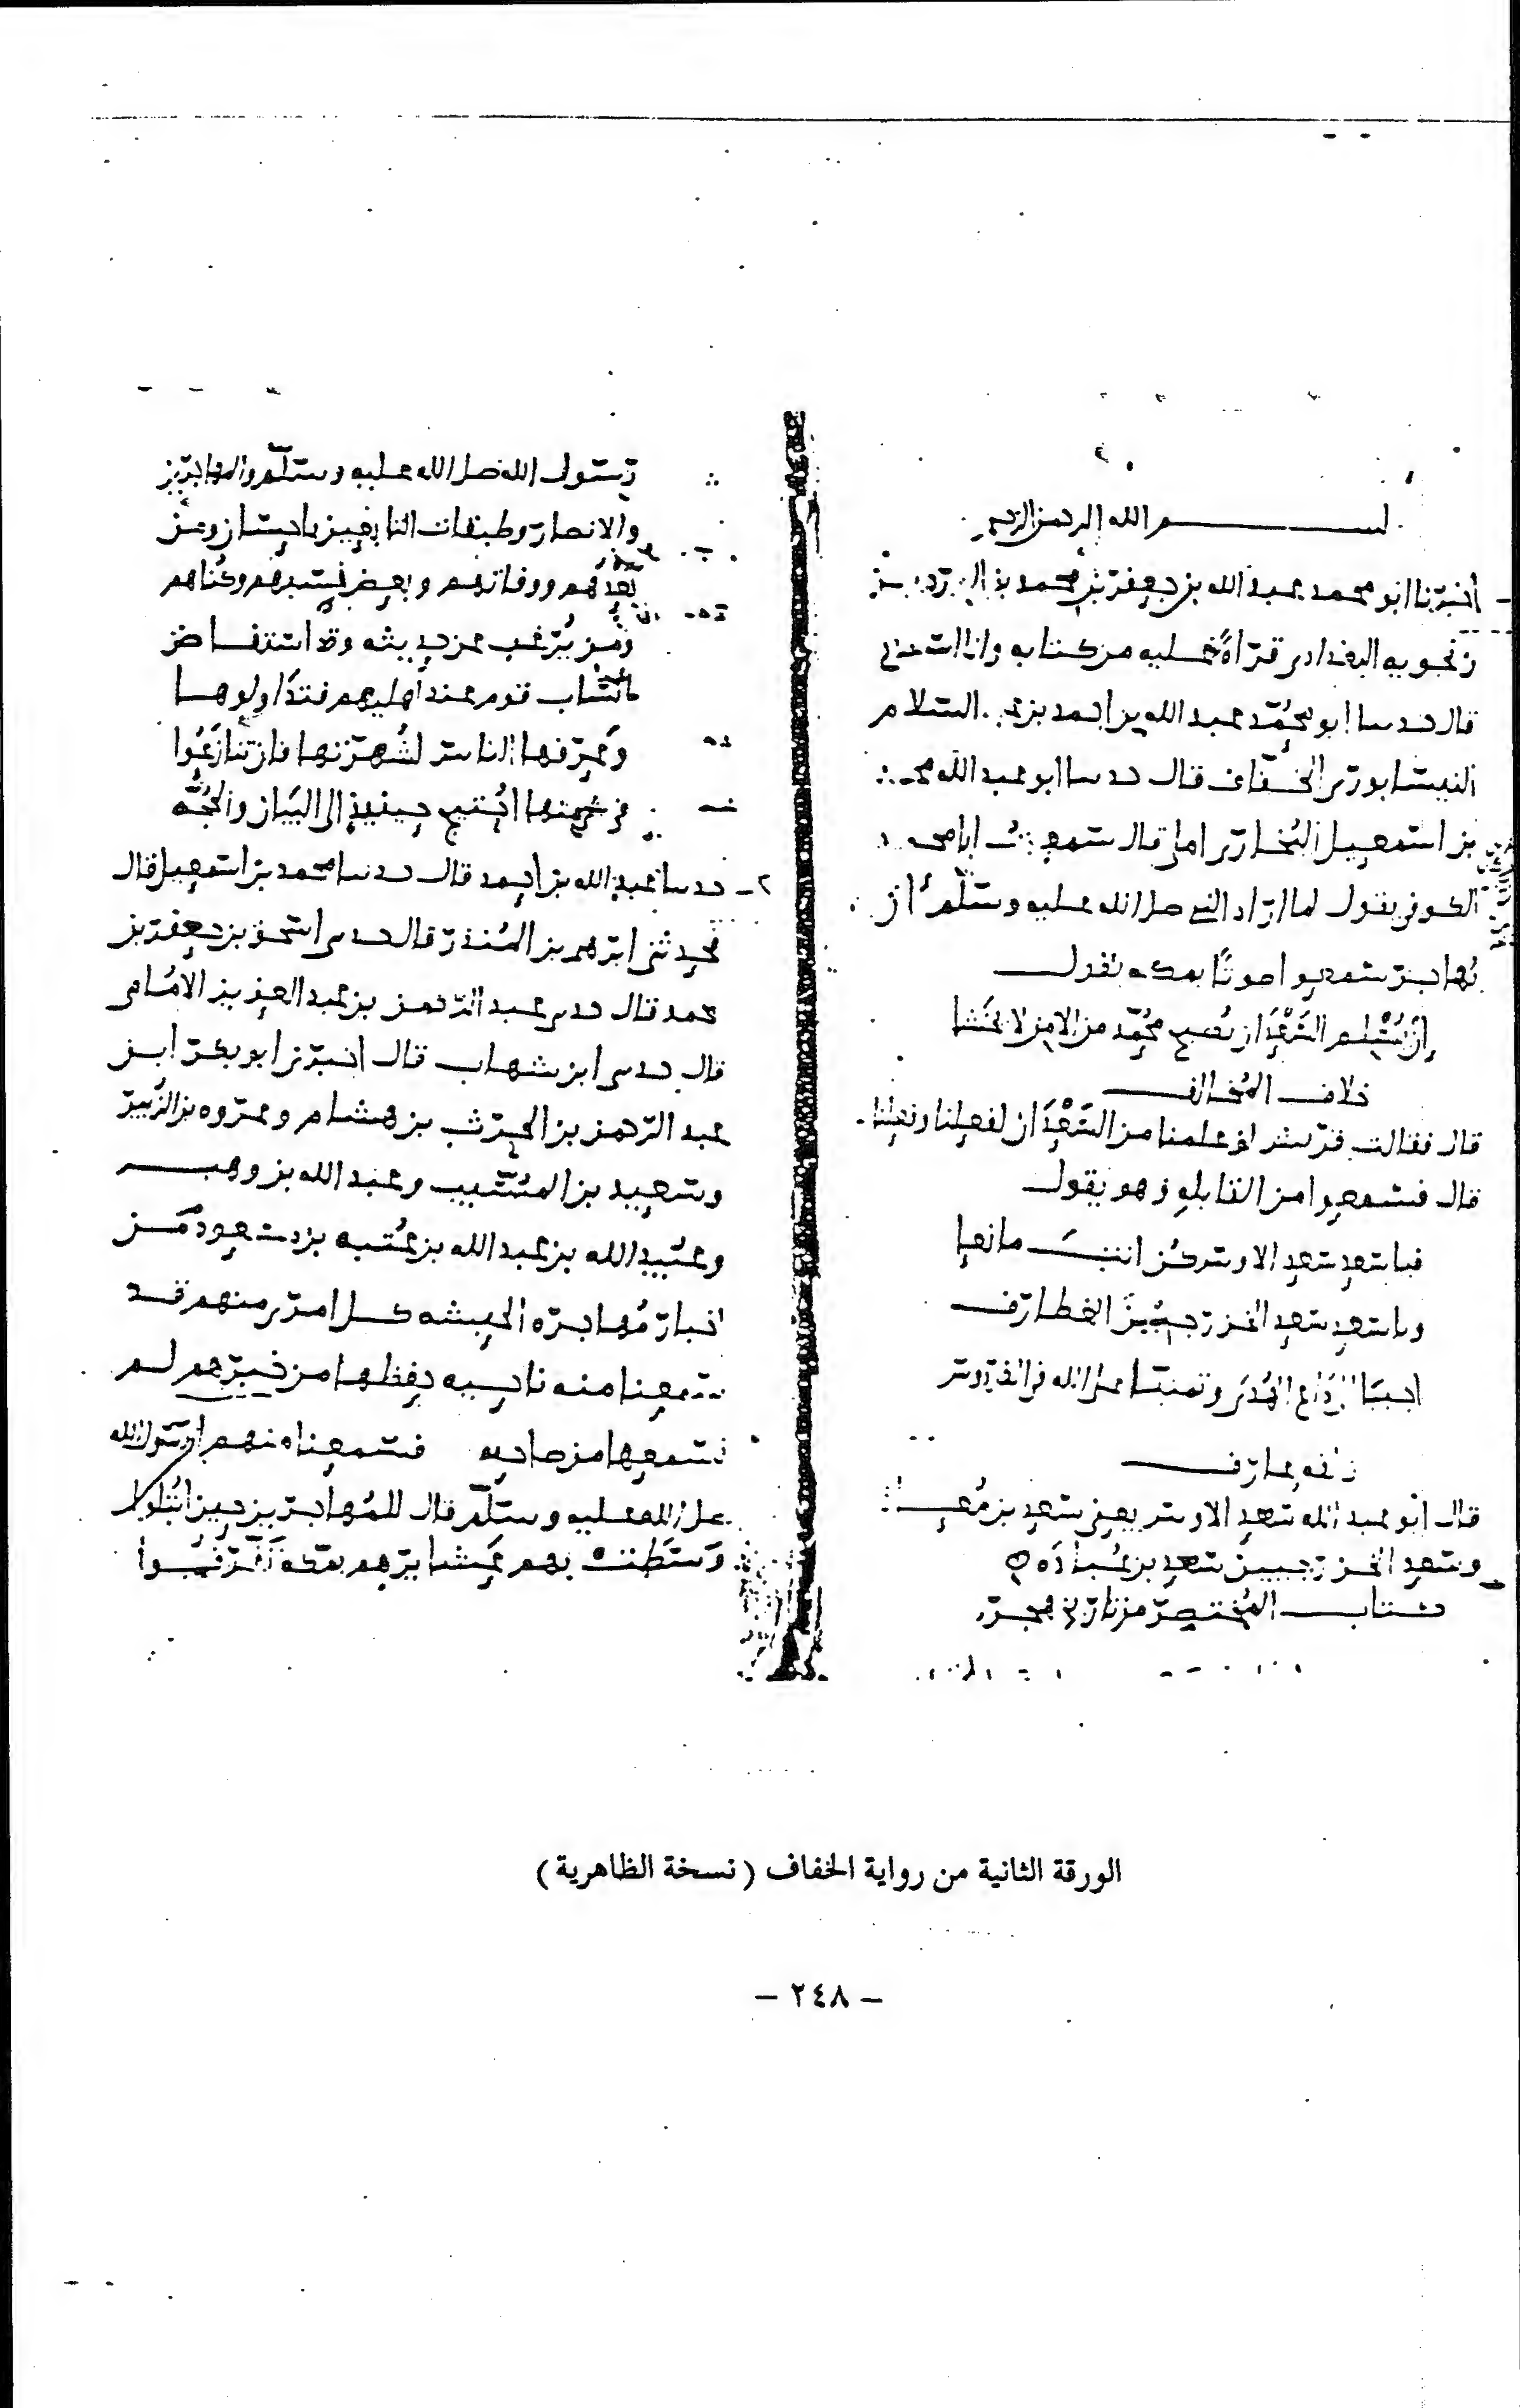 بسم الله الرحمن الرحيم
اخبرنا ابو محمد عبد الله بن جعفر بن محمد بن
زنجويه البغدادى قراة عليه من كتابه وانا اسمع
قال حدثنا ابو محمد عبد الله بن احمد بن عبد السلام
النيسابورى الخفاف قال حدثنا ابو عبد الله محمد
بن اسمعيل البخارى املا قال سمعت ابا محمد
الكوفى يقول لما اراد النبى صلى الله عليه وسلم ان
يهاجر سمعوا صوتا بمكه يقول
ان يسلم السعدان يصبح محمد من الامن لا يخشا
خلاف المخالف
قال فقالت قريش لو علمنا من السعدان لفعلنا وفعلنا
قال فسمعوا من القابله وهو يقول
فيا سعد سعد الاوس كن انت مانعا
ويا سعد سعد الخزرجين الغطارف
اجيبا الى داع الهدى وتمنيا على الله فى الفردوس
زلفه عارف
قال ابو عبد الله سعد الاوس يعنى سعد بن معاذ
وسعد الخزرجيين سعد بن عباده
كتاب المختصر من تاريخ هجرة
رسول الله صلى الله عليه وسلم والمهاجرين
والانصار وطبقات التابعين باحسان ومن
بعدهم ووفاتهم وبعض نسبهم وكناهم
ومن يرغب عن حديثه وقد استفاض
انساب قوم عند اهليهم فتداولوها
وعرفها الناس لشهرتها فان تنازعوا
فى شى منها احتيج حينئذ الى البيان والحجه
٢ – حدثنا عبد الله بن احمد قال حدثنا محمد بن اسمعيل قال
حدثنى ابرهيم بن المنذر قال حدثنى اسحق بن جعفر بن
محمد قال حدثنى عبد الرحمن بن عبد العزيز الامامى
قال حدثنى ابن شهاب قال اخبرنى ابو بكر ابن
عبد الرحمن بن الحرث بن هشام وعروه بن الزبير
وسعيد بن المسيب وعبد الله بن وهب
وعبيد الله بن عبد الله بن عتبه بن مسعود من
اخبار مهاجره الحبشه كل امرى منهم قد
سمعنا منه ناحيه حفظها من خبرهم لم
نسمعها من صاحبه فسمعنا منهم ان رسول الله
صلى الله عليه وسلم قال للمهاجرين حين ابتلوا
وسطت بهم عشايرهم بمكه تفرقوا
الورقة الثانية من رواية الخفاف ( نسخة الظاهرية )
– ٢٤٨ –